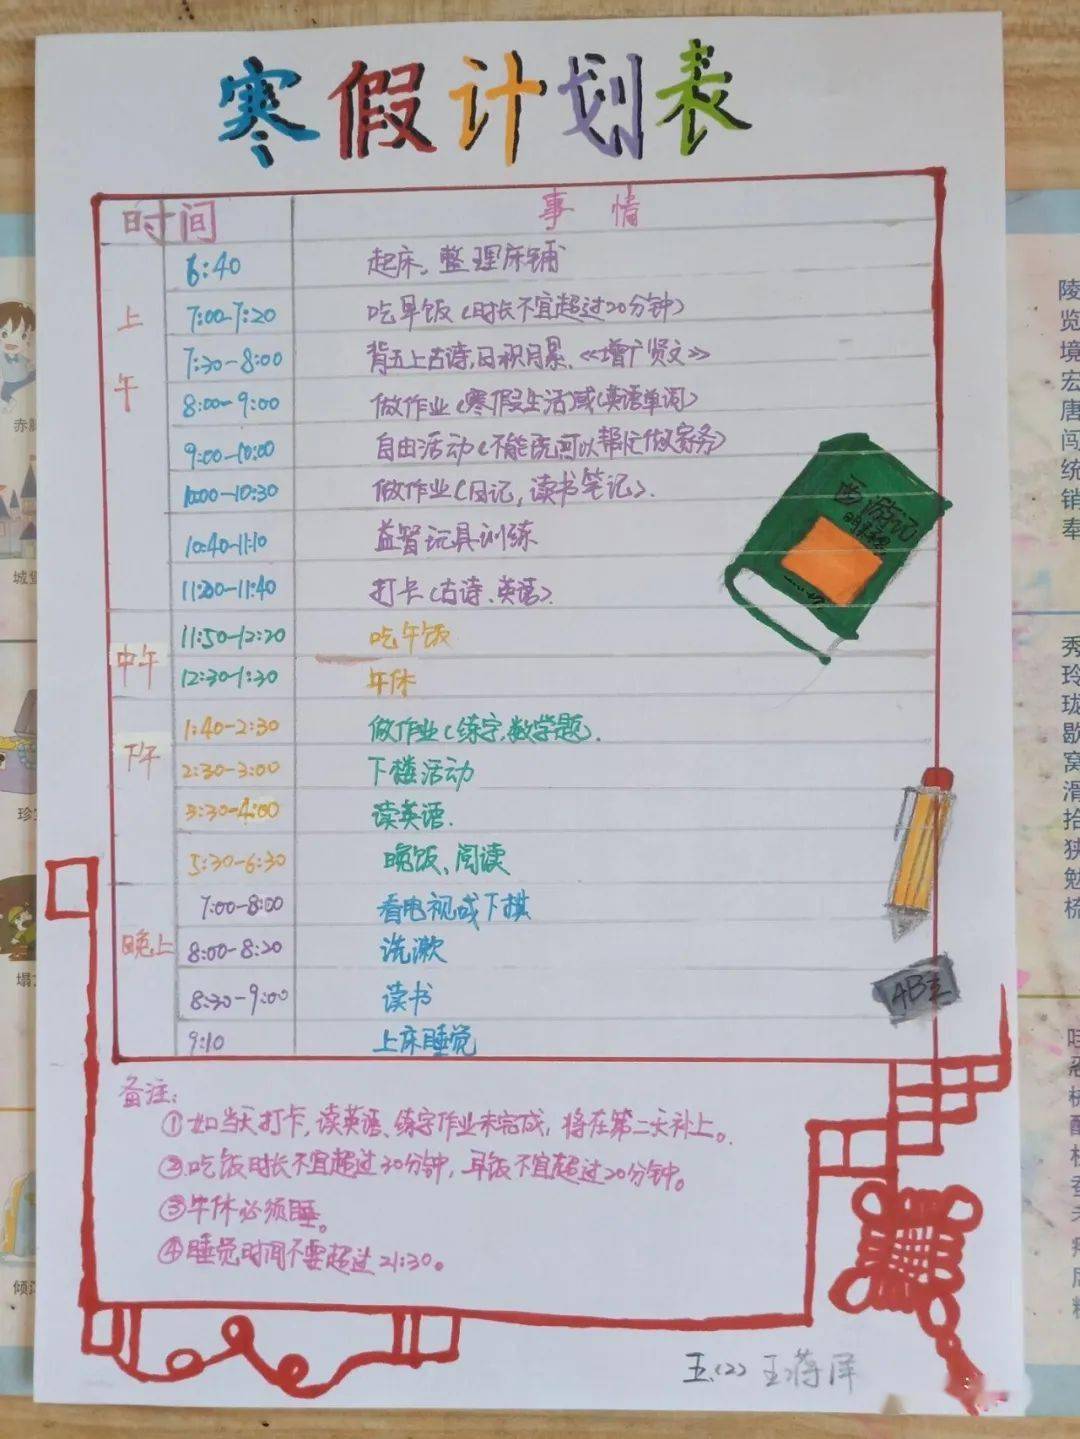 寒假计划表
时间 事情
上午
6:40 起床,整理床铺
7:00-7:20 吃早饭(时长不宜超过20分钟)
7:30-8:00 背五上古诗,日积月累、《增广贤文》
8:00-9:00 做作业(寒假生活)或(英语单词)
9:00-10:00 自由活动(不能玩可以帮忙做家务)
10:00-10:30 做作业(日记,读书笔记).
10:40-11:10 益智玩具训练
11:20-11:40 打卡(古诗、英语).
中午
11:50-12:20 吃午饭
12:30-1:30 午休
下午
1:40-2:30 做作业(练字,数学题).
2:30-3:00 下楼活动
3:30-4:00 读英语.
5:30-6:30 晚饭、阅读
晚上
7:00-8:00 看电视或下棋
8:00-8:20 洗漱
8:30-9:00 读书
9:10 上床睡觉
西游记
备注:
①如当天打卡,读英语、练字作业未完成,将在第二天补上。
②吃饭时长不宜超过30分钟,早饭不宜超过20分钟。
③午休必须睡。
④睡觉时间不要超过21:30。
五(2) 王蒋
陵
览
境
宏
唐
闯
统
销
奉
秀
玲
珑
歇
窝
滑
拾
狭
勉
梳